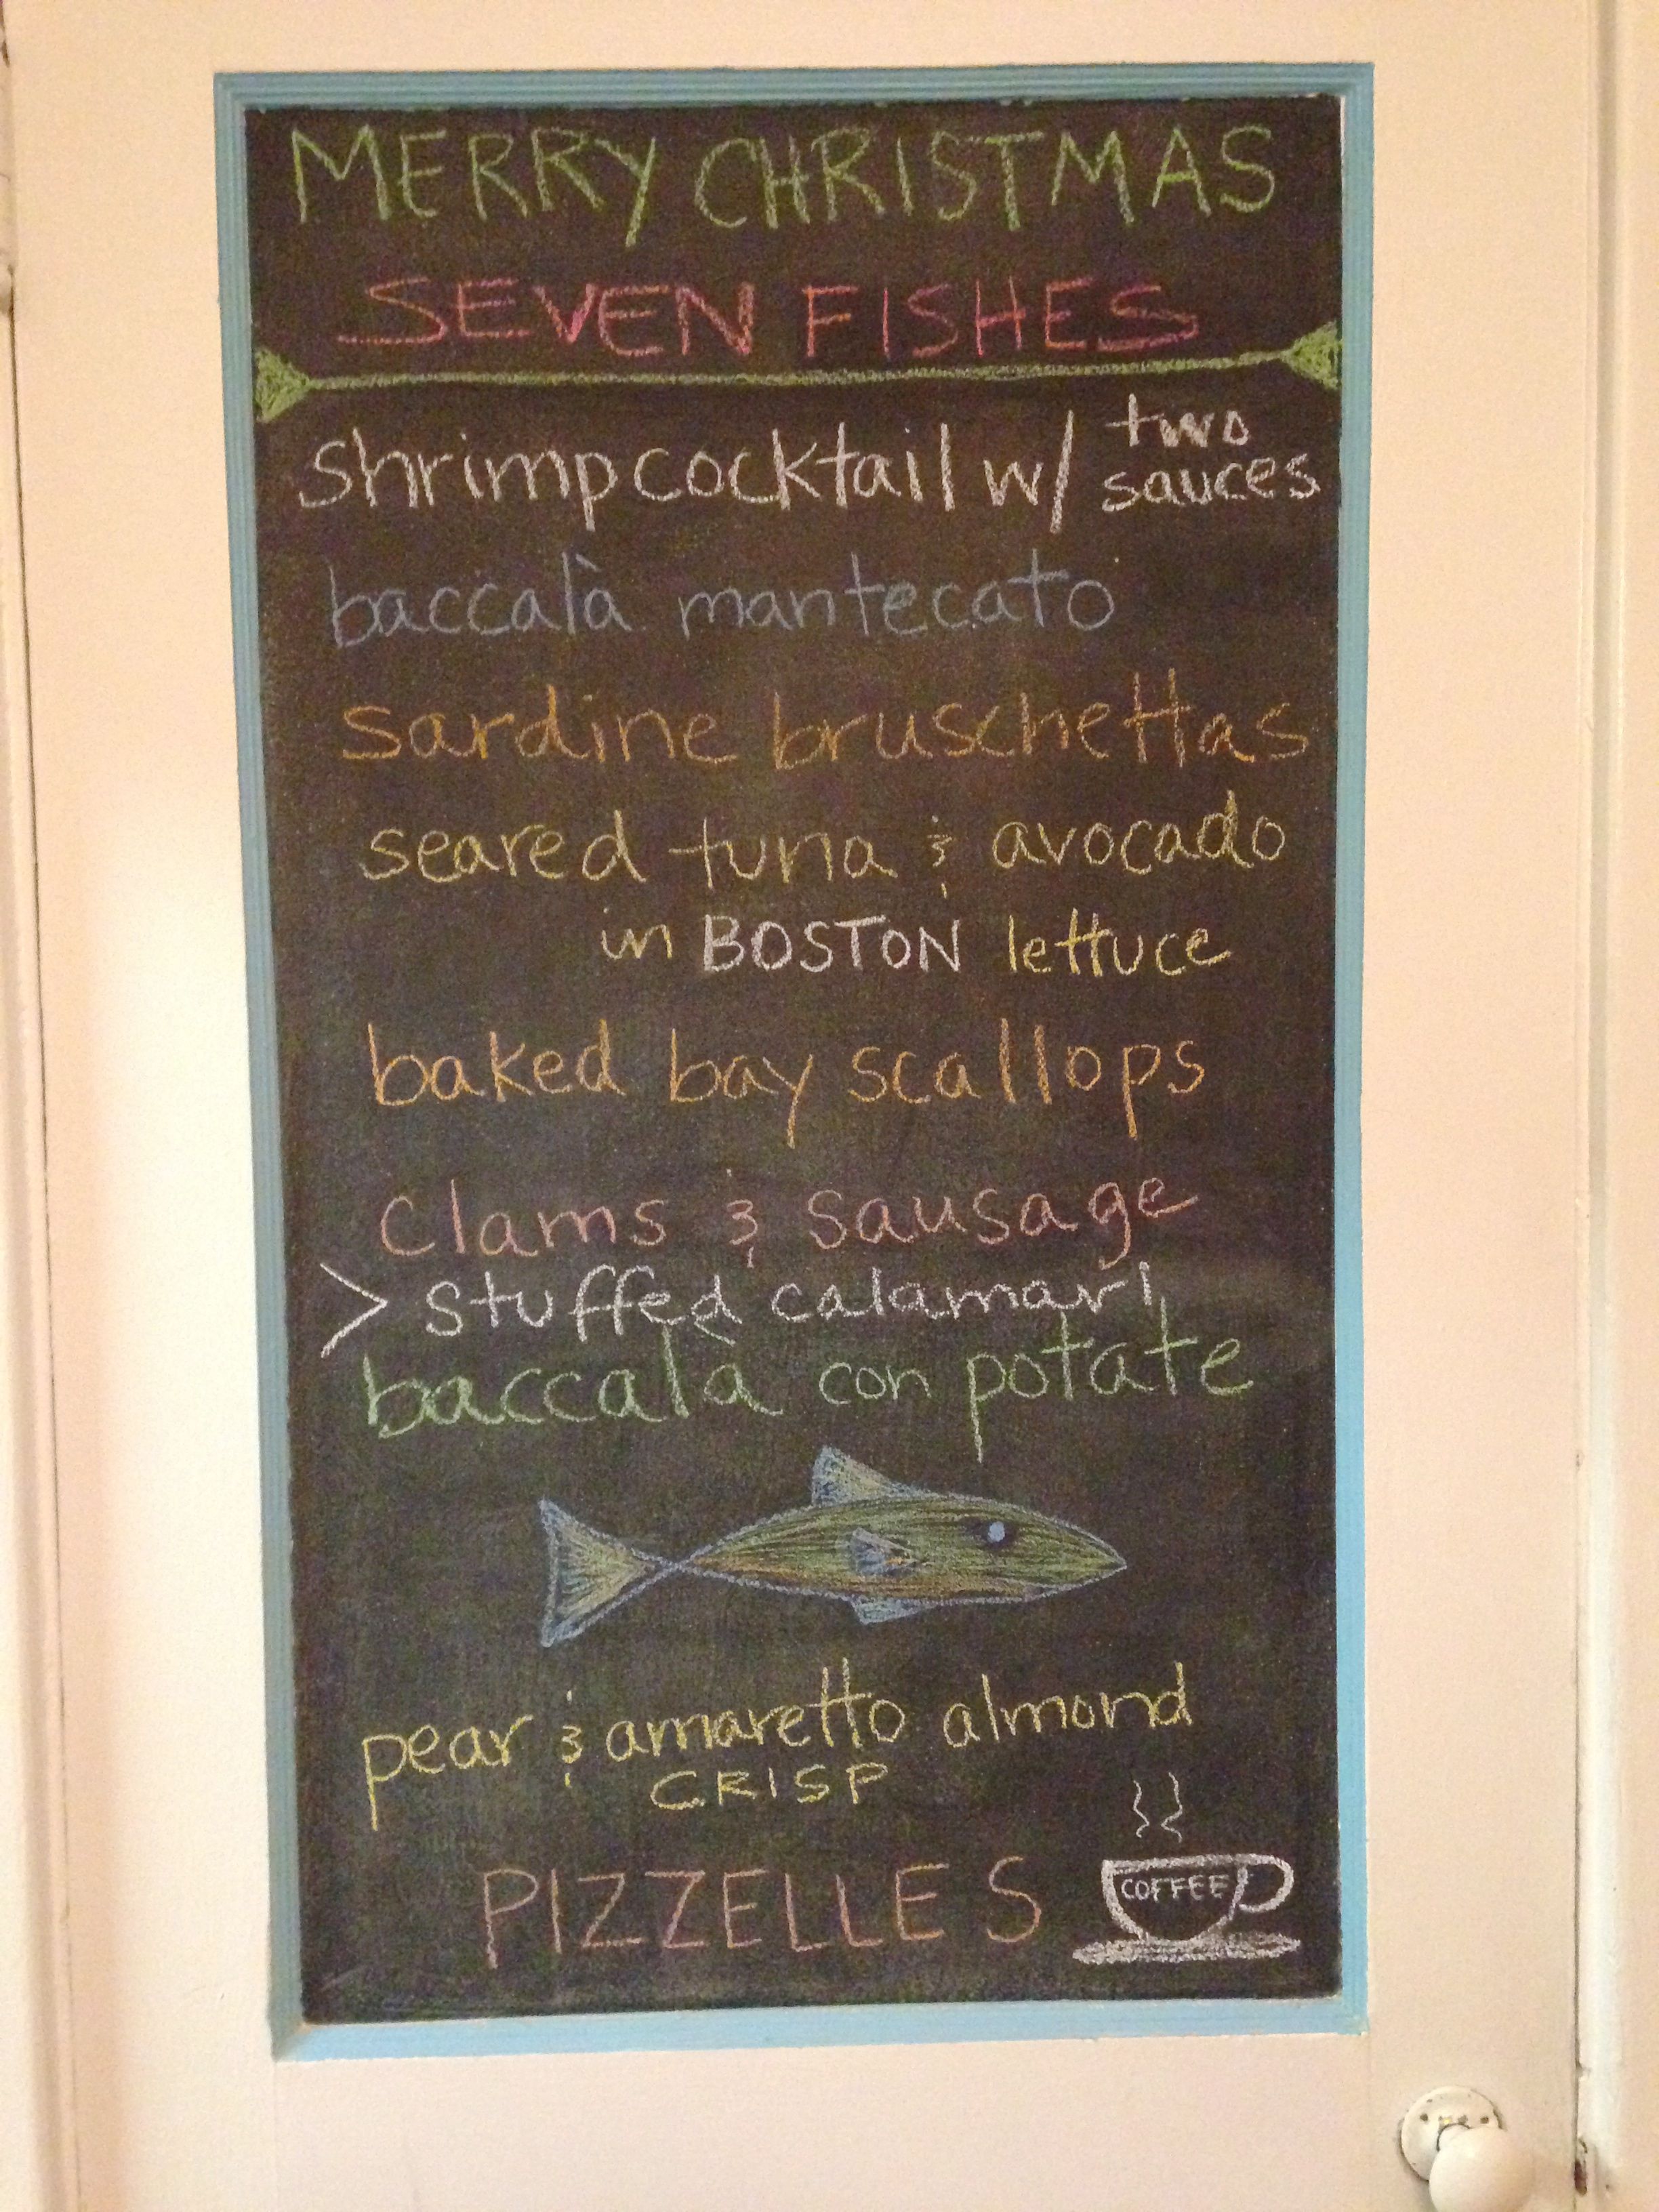 MERRY CHRISTMAS
SEVEN FISHES
shrimp cocktail w/ two sauces
baccalà mantecato
sardine bruschettas
seared tuna & avocado
in BOSTON lettuce
baked bay scallops
clams & sausage
> stuffed calamari
baccalà con potate
pear & amaretto almond
CRISP
PIZZELLES
COFFEE